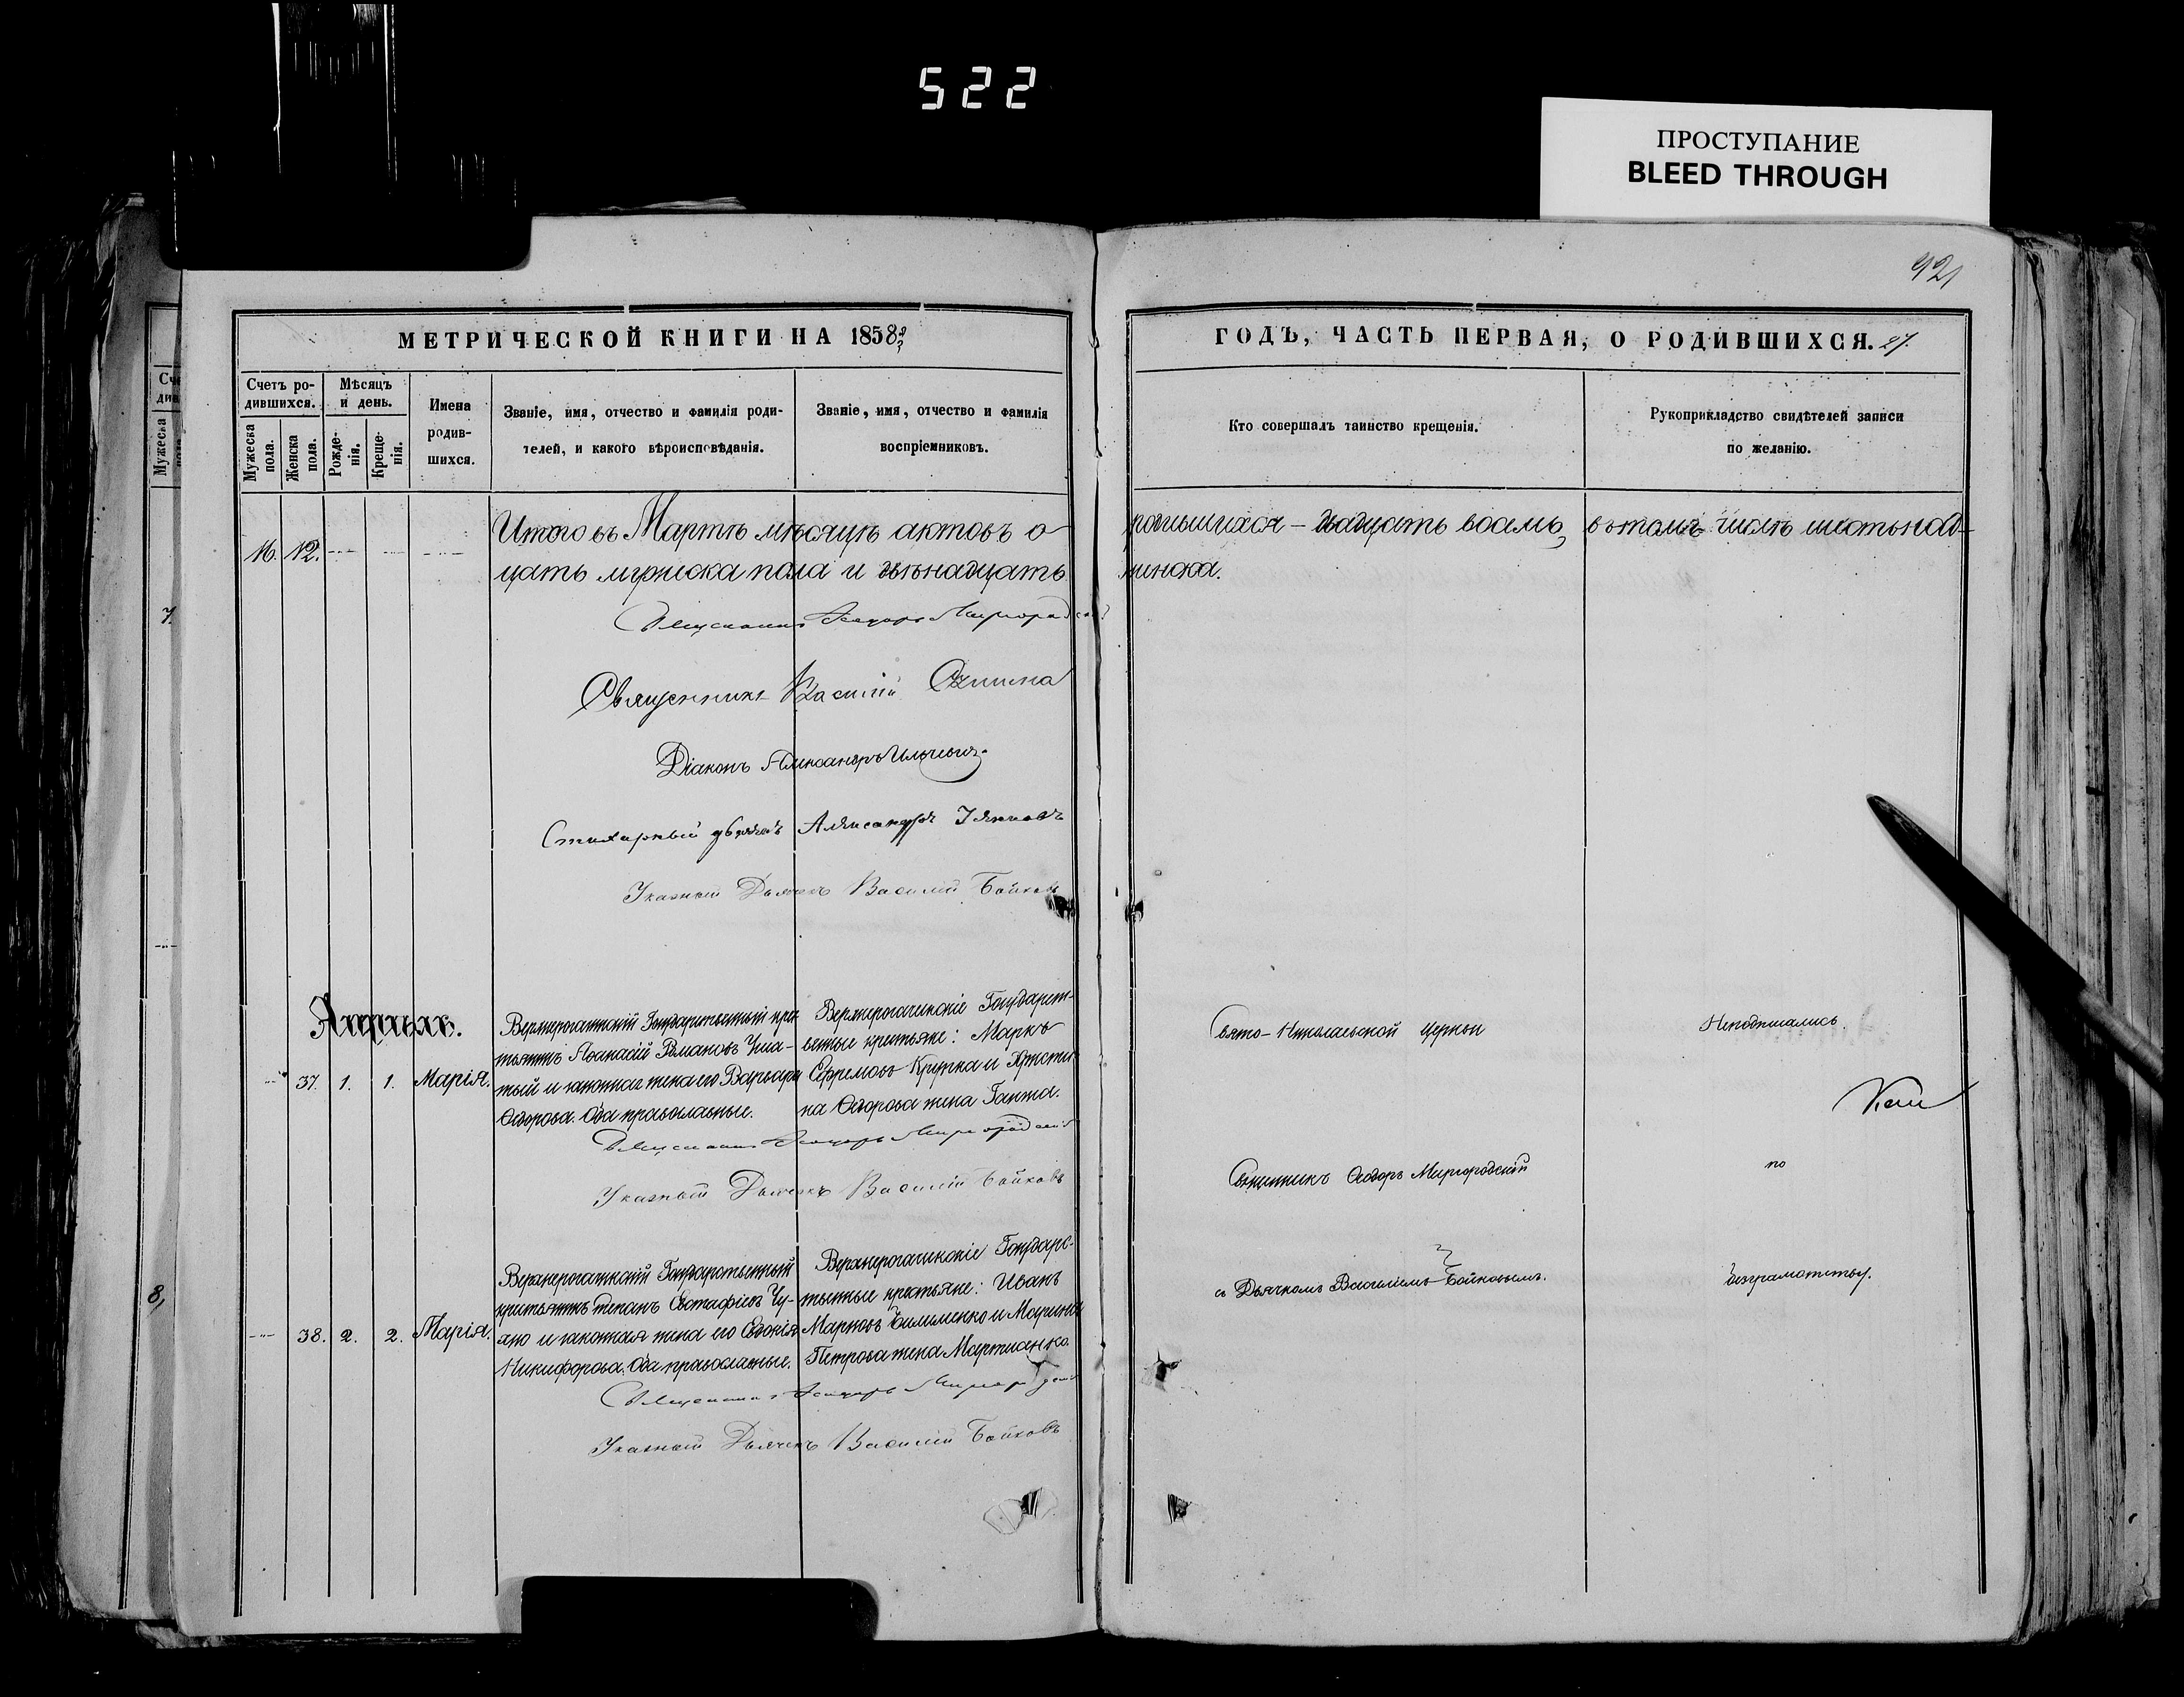 522
ПРОСТУПАНИЕ
BLEED THROUGH
421
МЕТРИЧЕСКОЙ КНИГИ НА 1858
ГОДЪ, ЧАСТЬ ПЕРВАЯ, О РОДИВШИХСЯ. 27.
Счетъ ро-
дившихся.
Мужеска
пола.
Женска
пола.
Мѣсяцъ
и день.
Рожде-
нія.
Креще-
нія.
Имена
родив-
шихся.
Званіе, имя, отчество и фамилія роди-
телей, и какого вѣроисповѣданія.
Званіе, имя, отчество и фамилія
воспріемниковъ.
Кто совершалъ таинство крещенія.
Рукоприкладство свидѣтелей записи
по желанію.
Итого въ Мартѣ мѣсяцѣ актовъ о родившихся – двадцать восемь, въ томъ числѣ шестьнад-
16. 12.
цать мужеска пола и двѣнадцать женска.
Священникъ Ѳеодоръ Миргородскій
Священникъ Василій
Діаконъ Александръ Ильчевичъ
Стихарный дьячекъ Александръ
Указный Дьячекъ Василій Бойковъ
Апрѣль.
37. 1. 1. Марія.
Верхнерогачикскій Государственный крес-
тьянинъ Аѳанасій Романовъ
тый и законная жена его Варвара
Ѳедорова. Оба православные.
Верхнерогачикскіе Государст-
венные крестьяне: Марко
Ефремовъ Крупка и Христи-
на Ѳедорова жена Ганжа.
Священникъ Ѳеодоръ Миргородскій
Указный Дьячекъ Василій Бойковъ
Свято-Николаевской церкви
Неподписались
Священникъ Ѳеодоръ Миргородскій
по
съ Дьячкомъ Василіемъ Бойковымъ.
безграмотству.
38. 2. 2. Марія.
Верхнерогачикскій Государственный
крестьянинъ Степанъ Евстафіевъ Чу-
и законная жена его Евдокія
Никифорова. Оба православные.
Верхнерогачикскіе Государс-
твенные крестьяне: Иванъ
Марковъ и Марина
Петрова жена Мартиенко.
Священникъ Ѳеодоръ Миргородскій
Указный Дьячекъ Василій Бойковъ
7.
8,